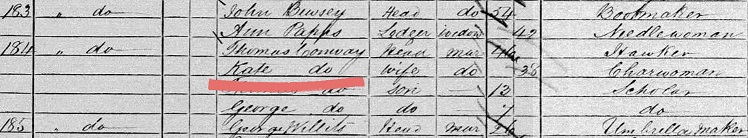 183 " do John Bewsey Head do 54 Bootmaker
Ann Papps Lodger Widow 42 Needlewoman
184 " do Thomas Conway Head mar Hawker
Kate do Wife do 38 Charwoman
do son — 12 Scholar
George do do 7 do
185 " do George Willits Head mar 26 Umbrella maker